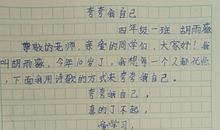 夸夸我自己
四年级一班 胡雨薇
尊敬的老师,亲爱的同学们,大家好!我
叫胡雨薇,今年10岁了,我想
,下面我用诗歌的方式来夸夸我自己。
夸夸我自己,
真的了不起,
爱学习,